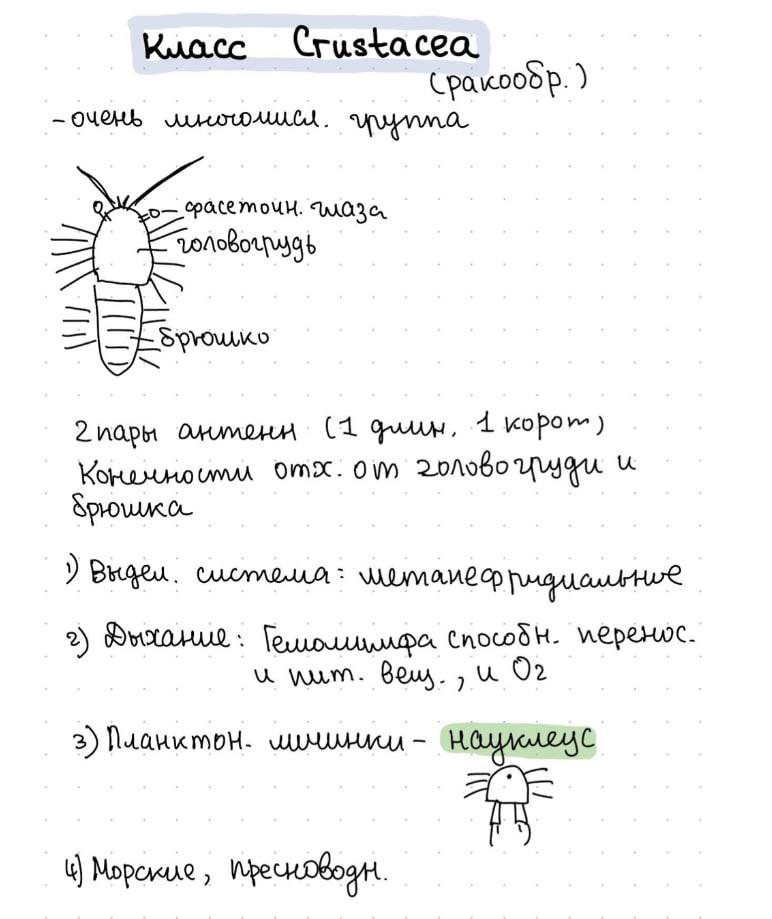 Класс Crustacea
(ракообр.)
- очень многочисл. группа
фасеточн. глаза
головогрудь
брюшко
2 пары антенн (1 длин, 1 корот)
Конечности отх. от головогруди и
брюшка
1) Выдел. система: метанефридиальные
2) Дыхание: Гемолимфа способн. перенос.
и пит. вещ., и O2
3) Планктон. личинки - науклеус
4) Морские, пресноводн.